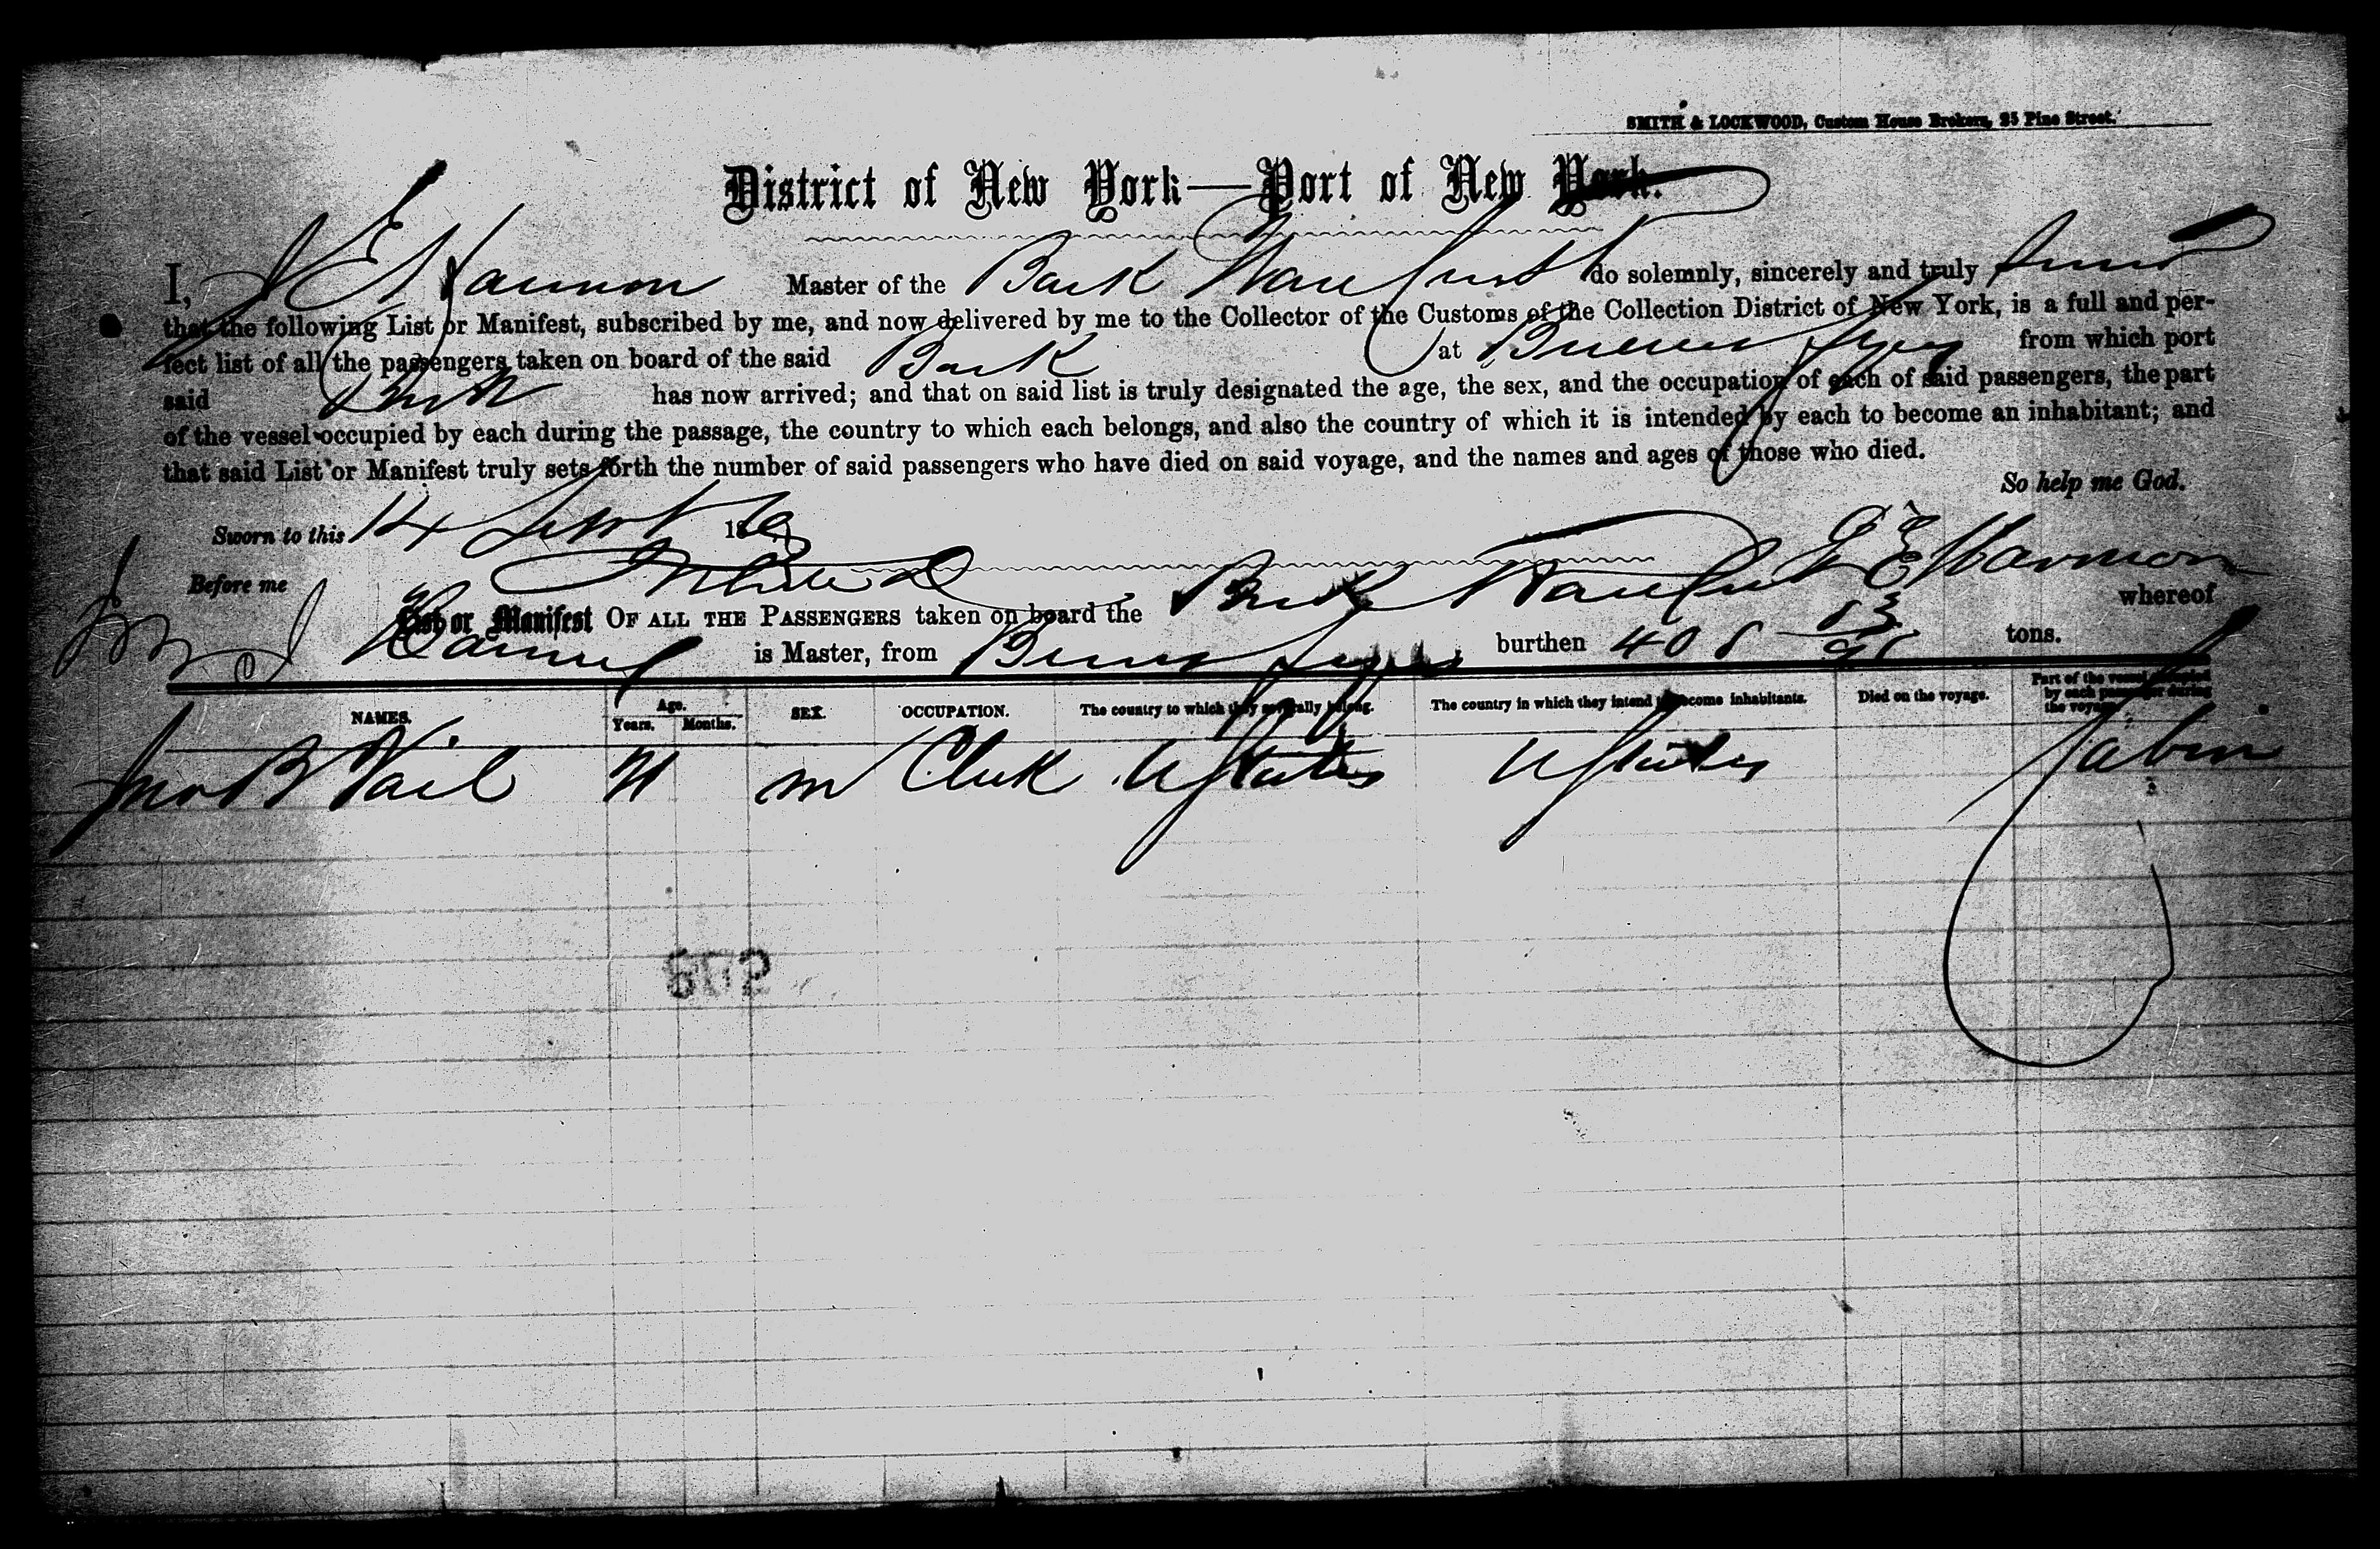 SMITH & LOCKWOOD, Custom House Brokers, 25 Pine Street.
District of New York—Port of New York.
I, J E Harmon Master of the Bark do solemnly, sincerely and truly
that the following List or Manifest, subscribed by me, and now delivered by me to the Collector of the Customs of the Collection District of New York, is a full and per-
fect list of all the passengers taken on board of the said Bark at Buenos Ayres from which port
said Bark has now arrived; and that on said list is truly designated the age, the sex, and the occupation of each of said passengers, the part
of the vessel occupied by each during the passage, the country to which each belongs, and also the country of which it is intended by each to become an inhabitant; and
that said List or Manifest truly sets forth the number of said passengers who have died on said voyage, and the names and ages of those who died.
So help me God.
Sworn to this 14 Sept 186 J E Harmon
Before me
List or Manifest OF ALL THE PASSENGERS taken on board the Bark whereof
Harmon is Master, from Buenos Ayres burthen 408 tons.
NAMES. Age. Years. Months. SEX. OCCUPATION. The country to which they severally belong. The country in which they intend to become inhabitants. Died on the voyage. Part of the vessel occupied by each passenger during the voyage.
Jno B Vail m Clerk U States U States Cabin
602